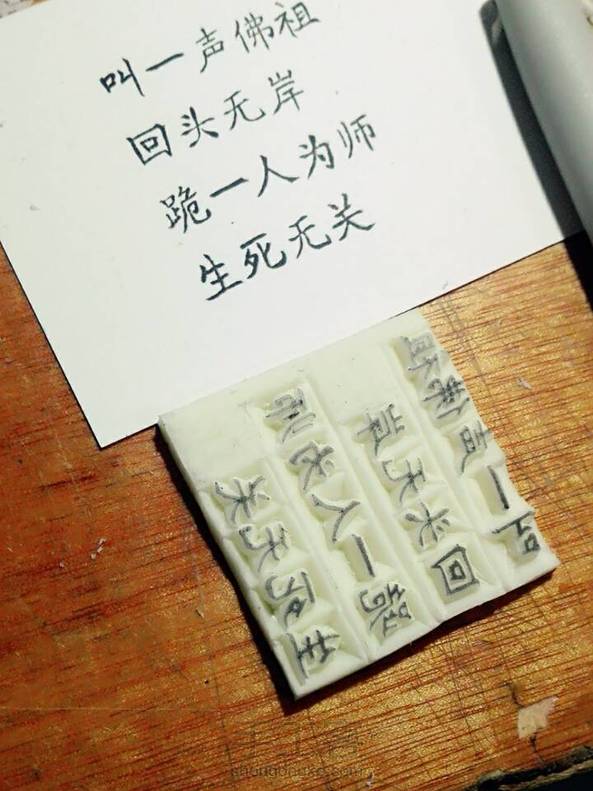 叫一声佛祖
回头无岸
跪一人为师
生死无关